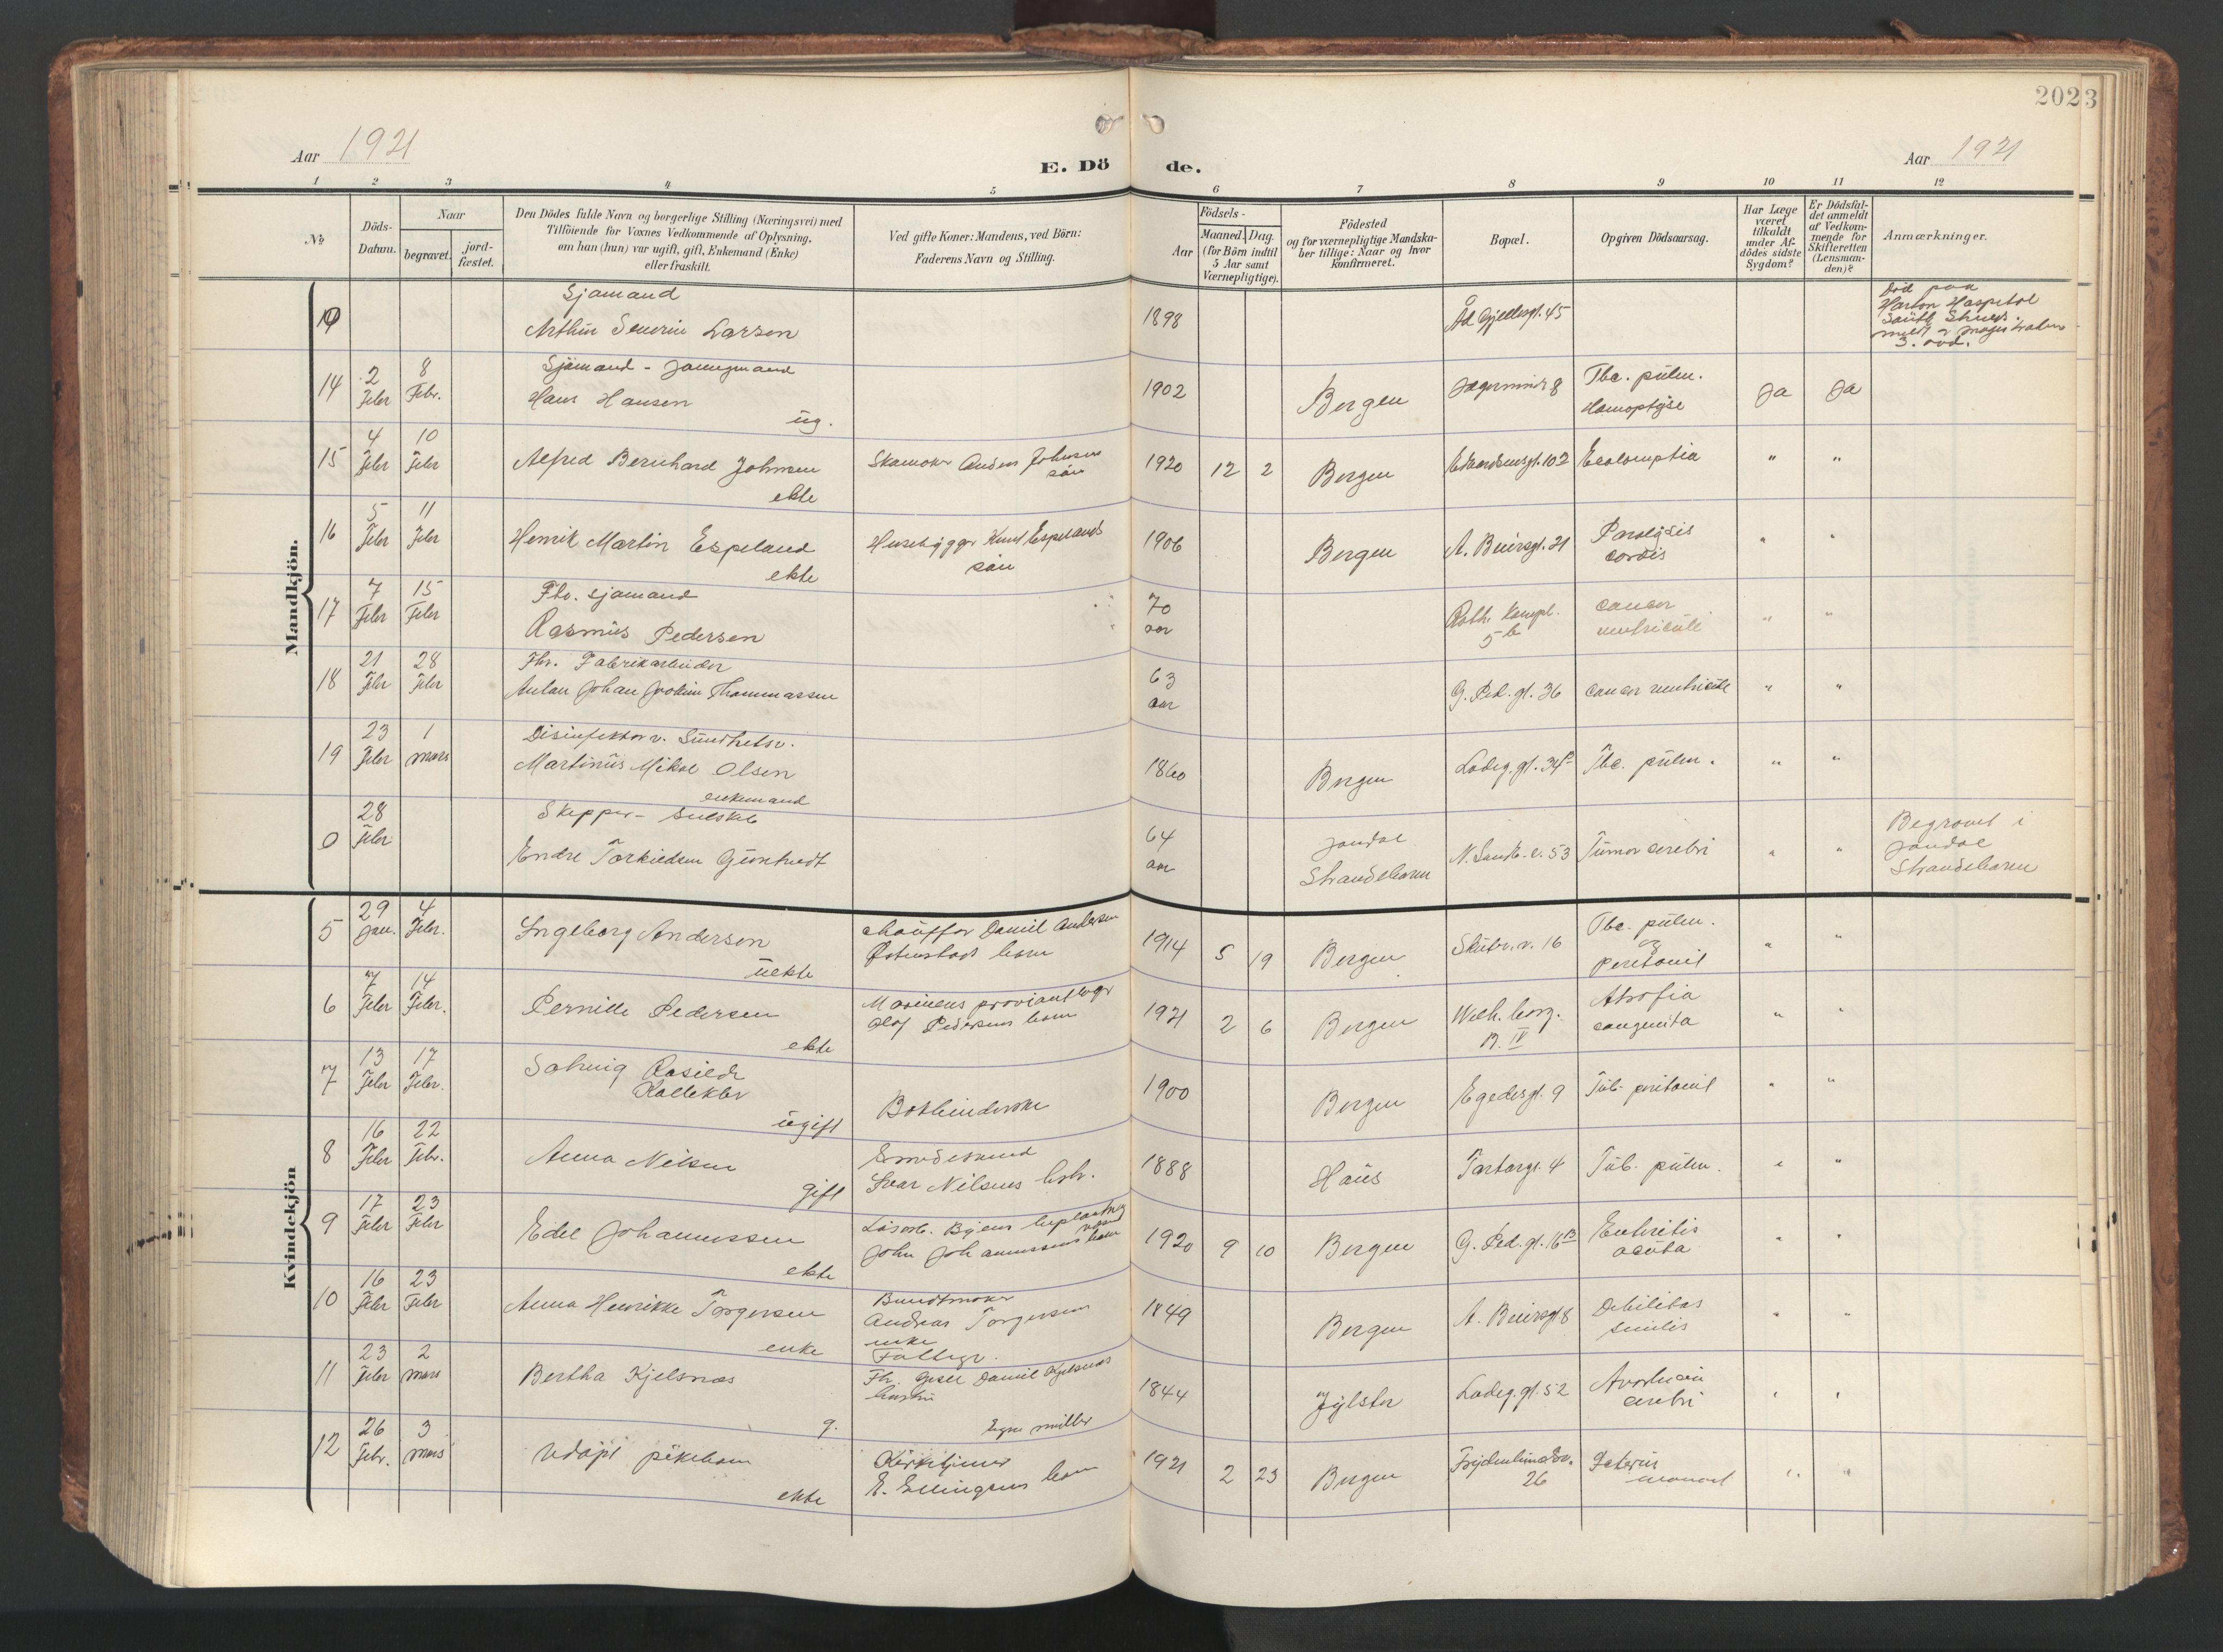 2023
Aar 1921
E. Dö
de.
Aar 1921
1 2 3 4 5 6 7 8 9 10 11 12
No
Döds-
Datum.
Naar
begravet.
jord-
fæstet.
Den Dödes fulde Navn og borgerlige Stilling (Næringsvei) med
Tilföiende for Voxnes Vedkommende af Oplysning,
om han (hun) var ugift, gift, Enkemand (Enke)
eller fraskilt.
Ved gifte Koner: Mandens, ved Börn:
Faderens Navn og Stilling.
Födsels-
Aar
Maaned.
Dag.
(for Börn indtil
5 Aar samt
Værnepligtige).
Födested
og for værnepligtige Mandska-
ber tillige: Naar og hvor
konfirmeret.
Bopæl.
Opgiven Dödsaarsag.
Har Læge
været
tilkaldt
under Af-
dödes sidste
Sygdom?
Er Dödsfal-
det anmeldt
af Vedkom-
mende for
Skifteretten
(Lensman-
den)?
Anmærkninger.
Mandkjön.
Sjømand
Arthur Severin Larsen
1898
Ad. Gjellesgt. 45
Död paa
Harton Hospital
South Shields
3. avd.
14
2 Febr
8 Febr.
Sjömand - Jaungmand
Hans Hansen
ug.
1902
Bergen
8
Tbc. pulm.
Hæmoptyse
Ja
Ja
15
4 Febr
10 Febr
Alfred Bernhard Johnsen
ekte
Skomaker Anders Johnsens
sön
1920 12 2
Bergen
Edvardsensgt. 102
Eclampsia
" "
16
5 Febr
11 Febr
Henrik Martin Espeland
ekte
Husebygger Knut Espelands
sön
1906
Bergen
A. Beiersgt. 21
Paralysis
cordis
" "
17
7 Febr
15 Febr
Fhv. sjømand
Rasmus Pedersen
70
aar
5 b
cancer
ventriculi
" "
18
21 Febr
28 Febr
Fhv. Fabrikarbeider
Anton Johan Joakim Thommassen
63
aar
G. Ped. gt. 36
cancer ventriculi
" "
19
23 Febr
1 mars
Disinfektør v. Sundhetsv.
Martinus Mikal Olsen
enkemand
1860
Bergen
Ladeg. gt. 34
Tbc. pulm.
" "
0
28 Febr
Skipper -
Endre Torkildsen Guntvedt
64
aar
Jondal
Strandebarm
N. Sandv. v. 53
Tumor cerebri
" "
Begravet i
Jondal
Strandebarm
Kvindekjön
5
29 Jan.
4 Febr.
Ingeborg Andersen
uekte
Chauffør Daniel Andersen
Østenstads barn
1914 5 19
Bergen
Skutev. v. 16
Tbc. pulm.
og
Peritonit
" "
6
7 Febr
14 Febr.
Pernille Pedersen
ekte
Marinens proviantlagr
Olaf Pedersens barn
1921 2 6
Bergen
Welh. borg.
B. IV
Atrofia
congenita
" "
7
13 Febr
17 Febr.
Solveig Rasilde
Kollekbr
ugift
Bokbinderske
1900
Bergen
Egedesgt. 9
Tub. peritonit
" "
8
16 Febr
22 Febr.
Anna Nilsen
gift
Smedesvend
Ivar Nilsens hstr.
1888
Haus
Tartargt. 4
Tub. pulm.
" "
9
17 Febr
23 Febr
Edel Johannessen
ekte
Løsarb. Byens beplantning
John Johannessens barn
1920 9 10
Bergen
G. Ped. gt. 16 B
Enteritis
acuta
" "
10
16 Febr
23 Febr
Anna Henrikke Torgersen
enke
Bundtmaker
Andreas Torgersens
enke
1849
Bergen
A. Beiersgt 8
Debilitas
senilis
" "
11
23 Febr
2 mars
Bertha Kjelsnæs
g.
Fattigv.
Fhv. Daniel Kjelsnæs
hustru
1844
Jölster
Ladeg. gt. 52
cerebri
" "
12
26 Febr.
3 mars
Udöpt pikebarn
ekte
Egne midler
Kirketjener
E. Ellingsens barn
1921 2 23
Bergen
Frydenlundsv.
26
Icterus
neonat
" "